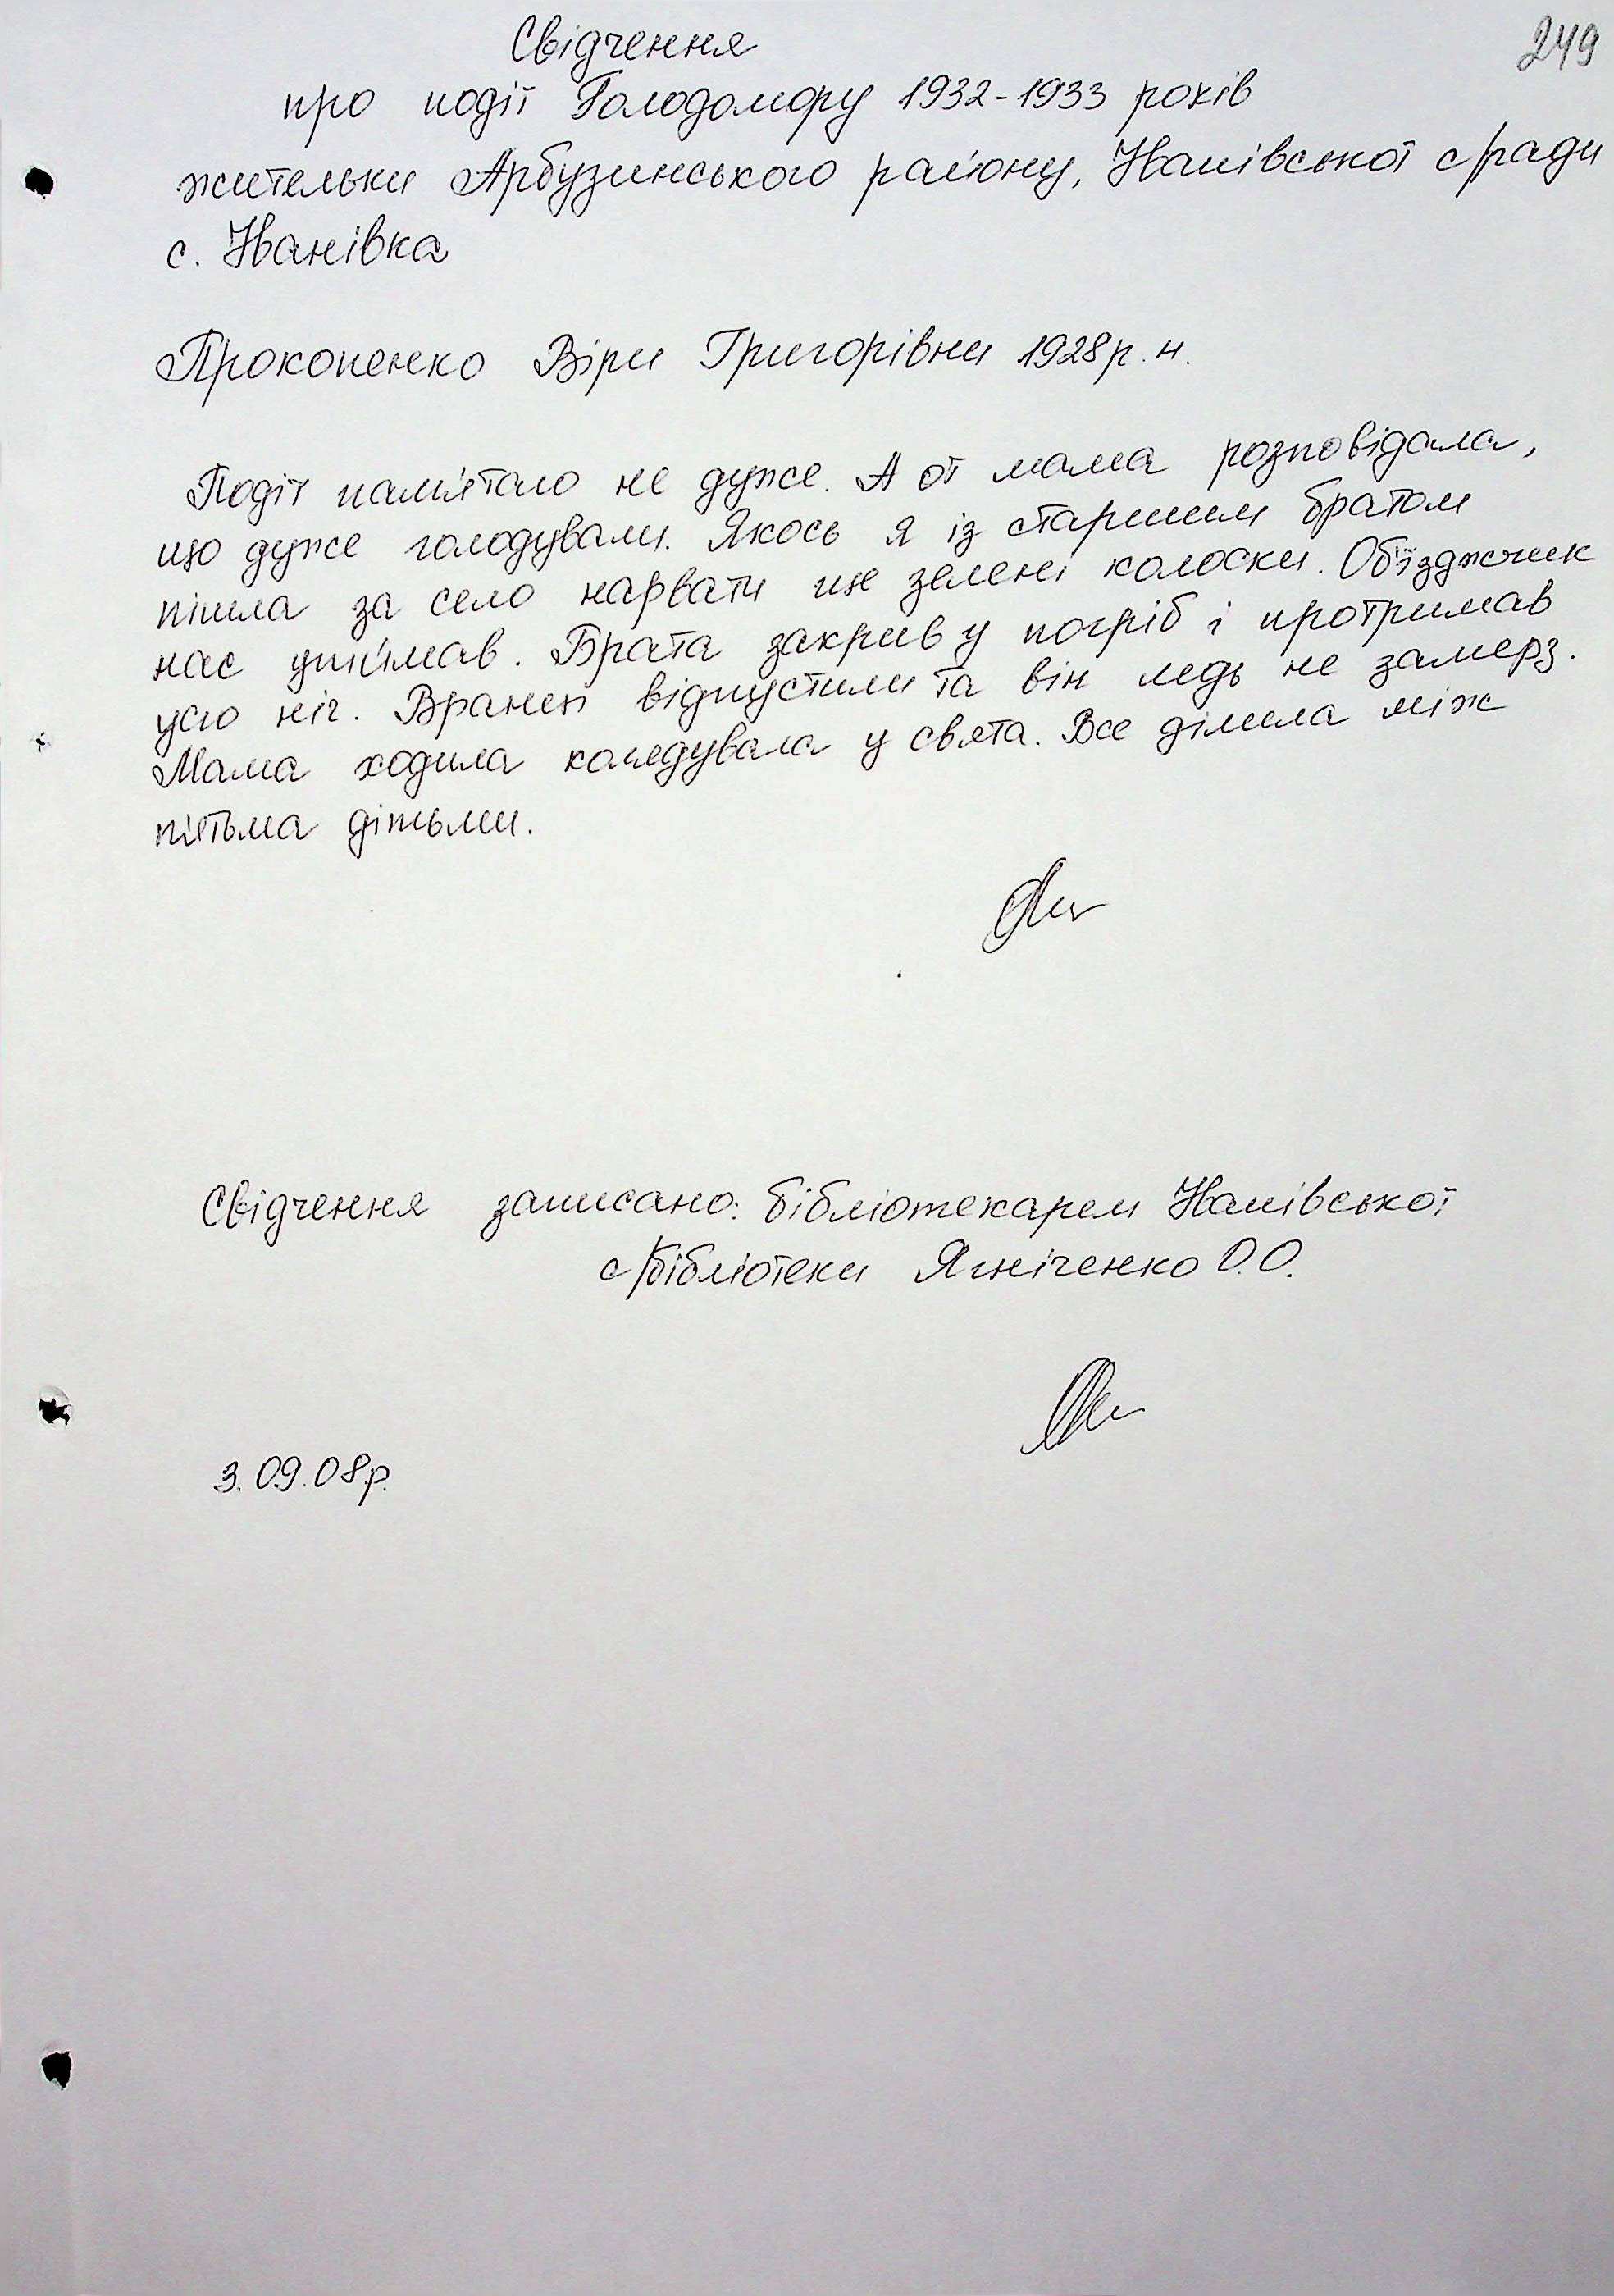 249
Свідчення
про події Голодомору 1932-1933 років
жительки Арбузинського району, Іванівської с/ради
с. Іванівка
Прокопенко Віри Григорівни 1928р.н.
Подіт пам'ятаю не дуже. А от мама розповідала,
що дуже голодували. Якось я із старшим братом
пішла за село нарвати ще зелені колоски. Об'їзджчик
нас упіймав. Брата закрив у погріб і протримав
усю ніч. Вранці відпустили та він ледь не замерз.
Мама ходила колядувала у свята. Все ділила між
п'ятьма дітьми.
Свідчення записано: бібліотекарем Іванівської
с/бібліотеки Ягніченко О.О.
3.09.08р.